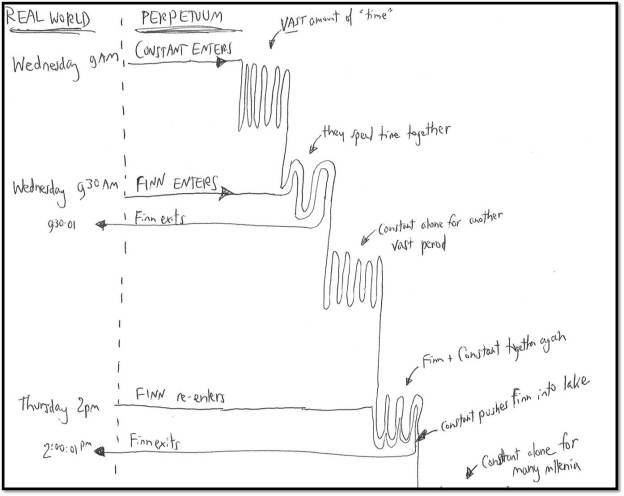 REAL WORLD
PERPETUUM
VAST amount of "time"
CONSTANT ENTERS
Wednesday 9AM
they spend time together
Wednesday 930AM
FINN ENTERS
930:01
Finn exits
Constant alone for another
vast period
Finn + Constant together again
Thursday 2pm
FINN re-enters
Constant pushes finn into lake
2:00:01 pm
Finn exits
Constant alone for
many millenia